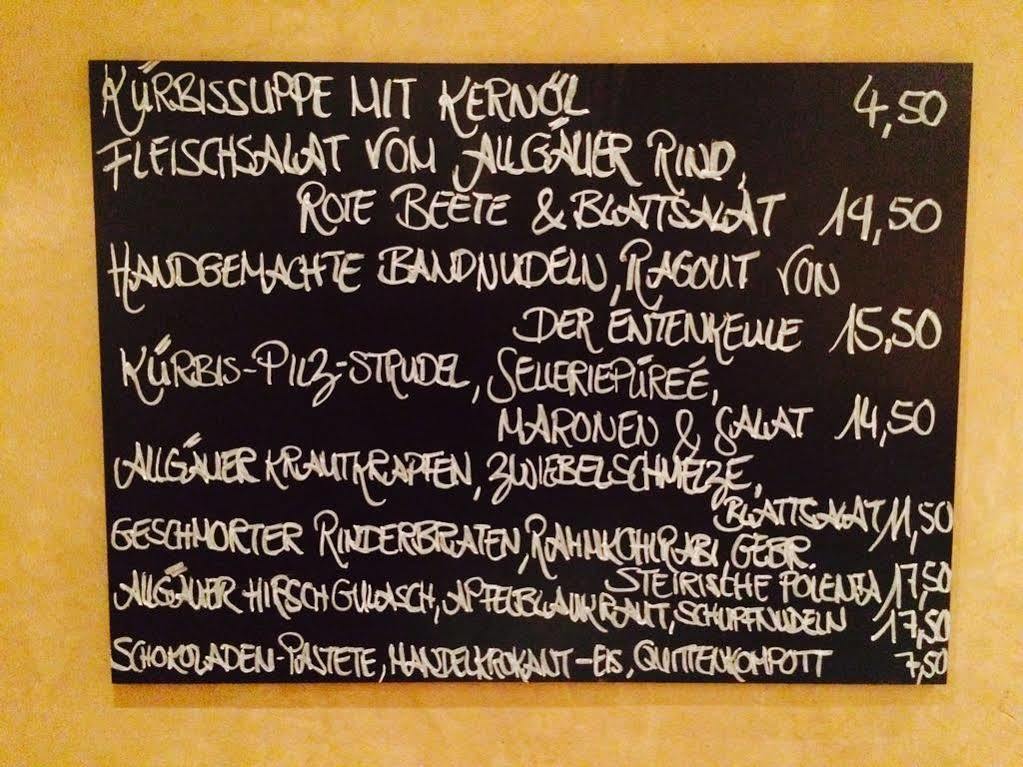 KÜRBISSUPPE MIT KERNÖL 4,50
FLEISCHSALAT VOM ALLGÄUER RIND,
ROTE BEETE & BLATTSALAT 14,50
HANDGEMACHTE BANDNUDELN, RAGOUT VON
DER ENTENKEULE 15,50
KÜRBIS-PILZ-STRUDEL, SELLERIEPÜREÉ,
MARONEN & SALAT 14,50
ALLGÄUER KRAUTKRAPFEN, ZWIEBELSCHMELZE,
BLATTSALAT 11,50
GESCHMORTER RINDERBRATEN, RAHMKOHLRABI, GEBR.
STEIRISCHE POLENTA 17,50
ALLGÄUER HIRSCHGULASCH, APFELBLAUKRAUT, SCHUPFNUDELN 17,50
SCHOKOLADEN-PASTETE, MANDELKROKANT-EIS, QUITTENKOMPOTT 7,50